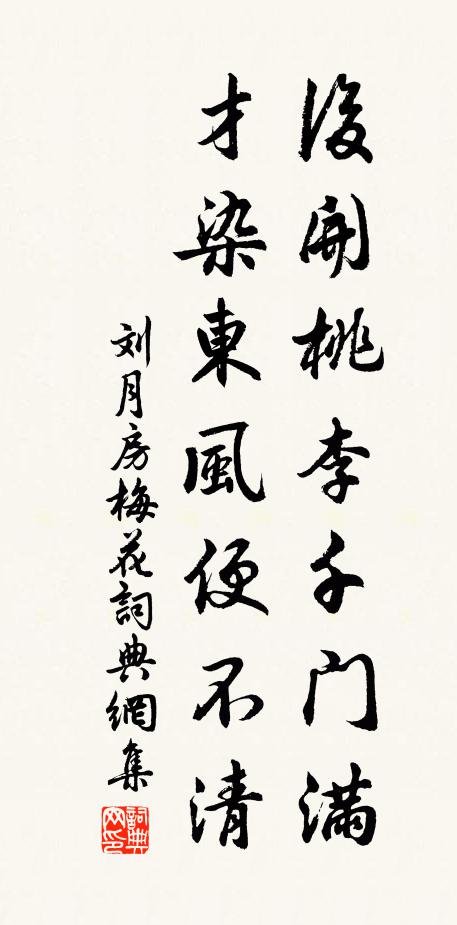 後開桃李千门滿
才染東風便不清
刘月房梅花詞典網集
詞典
网印